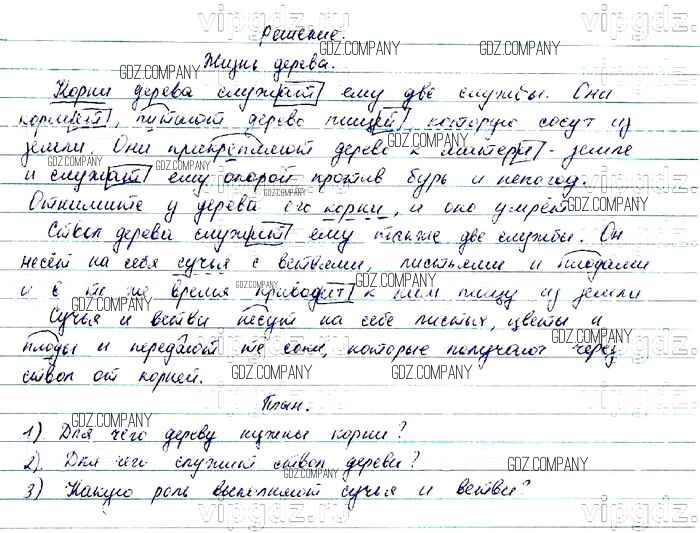 Решение.
Жизнь дерева.
Корни дерева служат ему две службы. Они
кормят, питают дерево пищей, которую сосут из
земли. Они прикрепляют дерево к матери - земле
и служат ему опорой против бурь и непогод.
Отнимите у дерева его корни, и оно умрёт.
Ствол дерева служит ему также две службы. Он
несёт на себя сучья с ветвями, листьями и плодами
и в то же время приводит к ним пищу из земли
Сучья и ветви несут на себе листья, цветы и
плоды и передают те соки, которые получают через
ствол от корней.
План.
1) Для чего дереву нужны корни?
2) Для чего служит ствол дерева?
3) Какую роль выполняют сучья и ветви?
vipgdz.ru
GDZ.COMPANY